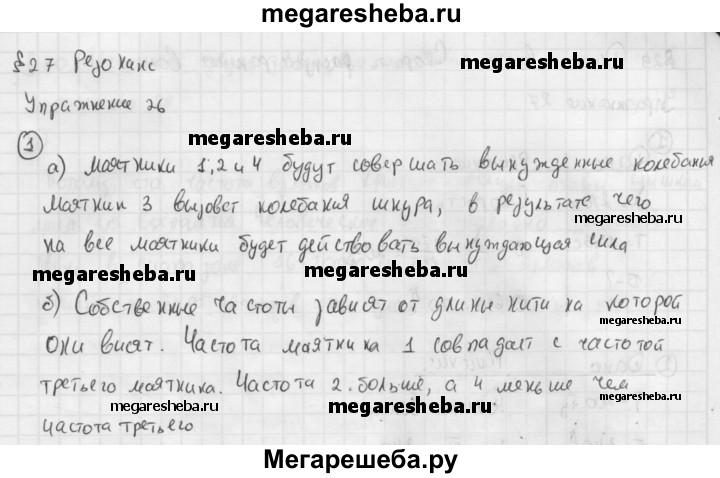 megaresheba.ru
§27 Резонанс
Упражнение 26
megaresheba.ru
megaresheba.ru
1
а) Маятники 1,2 и 4 будут совершать вынужденные колебания
Маятник 3 вызовет колебания шнура, в результате чего
megaresheba.ru
на все маятники будет действовать вынуждающая сила
megaresheba.ru
megaresheba.ru
б) Собственные частоты зависят от длины нити на которой
megaresheba.ru
они висят. Частота маятника 1 совпадает с частотой
третьего маятника. Частота 2 больше, а 4 меньше чем
megaresheba.ru
megaresheba.ru
megaresheba.ru
частота третьего
Мегарешеба.ру